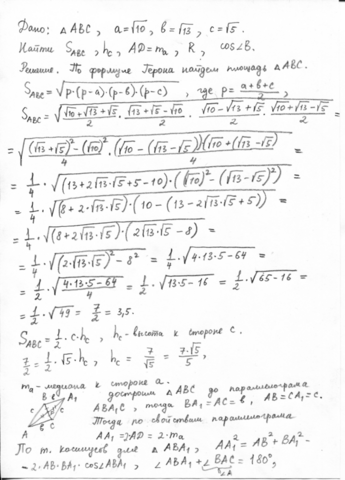 Дано: △ABC, a=√10, в=√13, c=√5.
Найти S_ABC, h_c, AD=m_a, R, cos∠B.
Решение. По формуле Герона найдем площадь △ABC.
S_ABC = √(p·(p-a)·(p-в)·(p-c)), где p = (a+в+c)/2,
S_ABC = √((√10+√13+√5)/2 · (√13+√5-√10)/2 · (√10-√13+√5)/2 · (√10+√13-√5)/2) =
= √(((√13+√5)²-(√10)²)/4 · (√10-(√13-√5))(√10+(√13-√5))/4) =
= 1/4 · √((13+2√13·√5+5-10)·((√10)²-(√13-√5)²)) =
= 1/4 · √((8+2·√13·√5)·(10-(13-2√13·√5+5))) =
= 1/4 · √((8+2√13·√5)·(2√13·√5-8)) =
= 1/4 · √((2√13·√5)²-8²) = 1/4 · √(4·13·5-64) =
= 1/2 · √((4·13·5-64)/4) = 1/2 · √(13·5-16) = 1/2 · √(65-16) =
= 1/2 · √49 = 7/2 = 3,5.
S_ABC = 1/2 · c·h_c, h_c-высота к стороне c.
7/2 = 1/2 · √5·h_c, h_c = 7/√5 = 7·√5/5,
m_a-медиана к стороне a.
достроим △ABC до параллелограма
ABA₁C, тогда BA₁=AC=в, AB=CA₁=c.
Тогда по свойствам параллелограма
AA₁=2·AD=2·m_a
По т. косинусов для △ABA₁, AA₁²=AB²+BA₁²-
-2·AB·BA₁·cos∠ABA₁, ∠ABA₁+∠BAC=180°,
∠A
B A₁
c в c
A в C